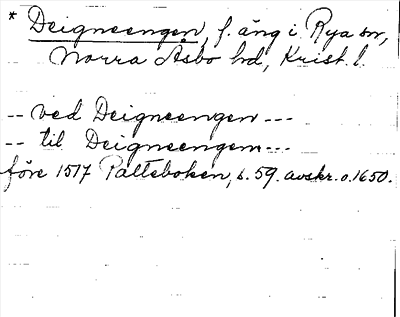 * Deigneengen, f. äng i Rya sn,
Norra Åsbo hd, Krist. l.
-- ved Deigneengen ---
-- til Deigneengem---
före 1517 Palteboken, s. 59. avskr. o. 1650.